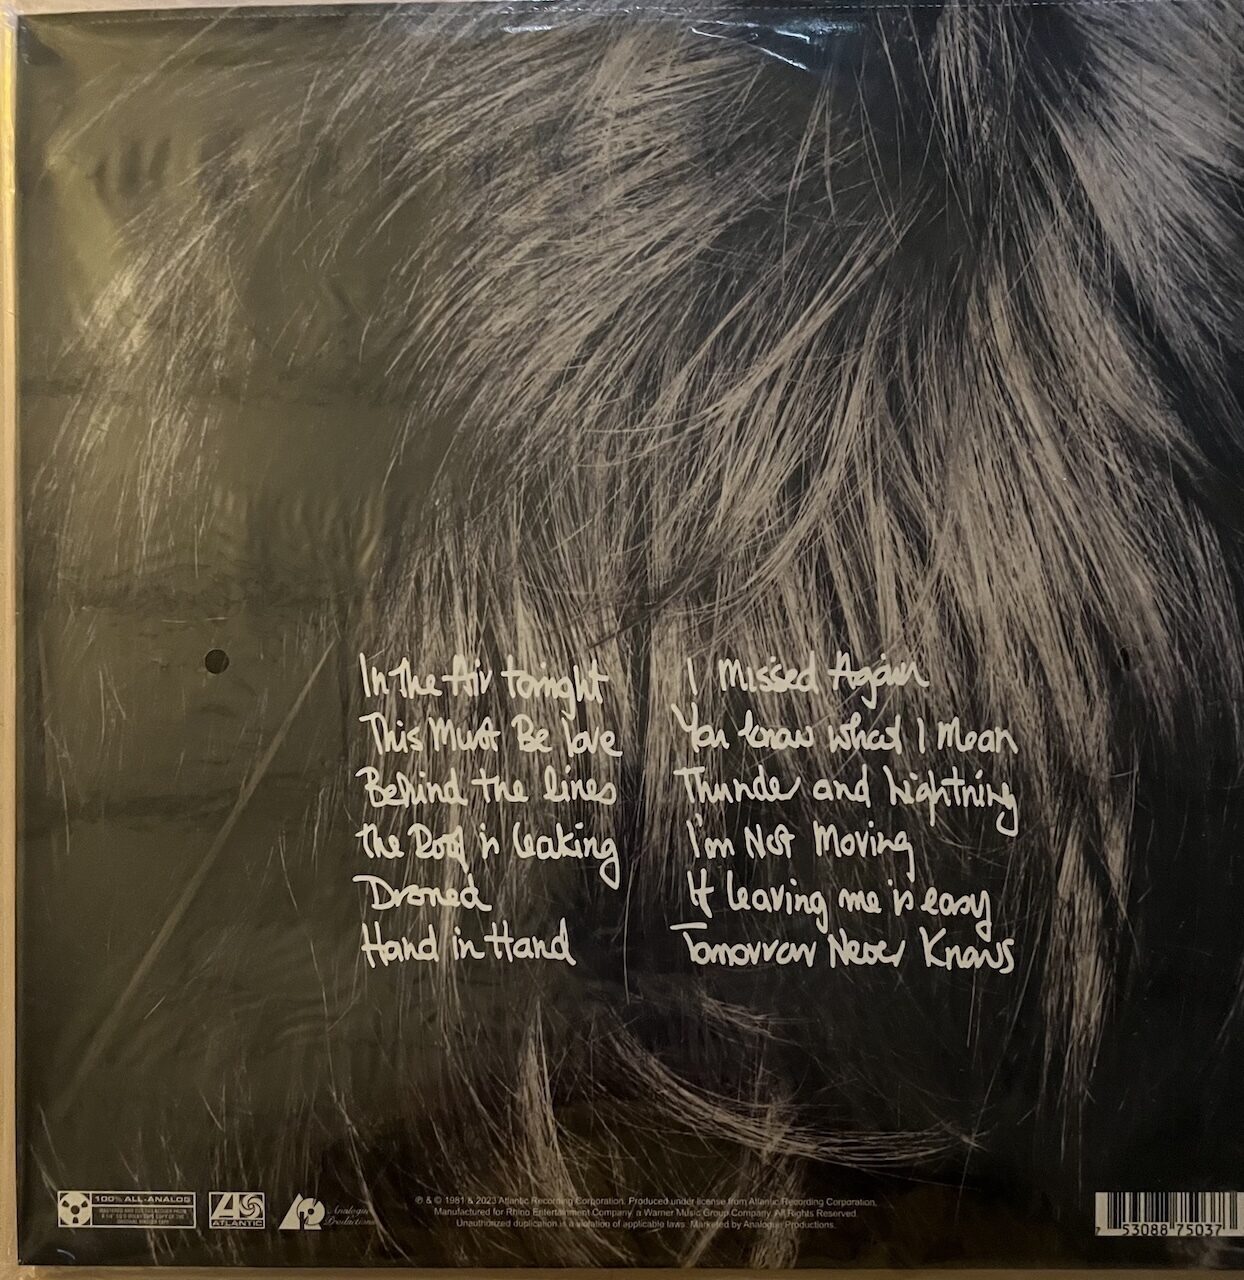 In The Air tonight
This Must Be love
Behind the lines
the Roof is leaking
Droned
Hand in Hand
I Missed Again
You know what I Mean
Thunder and Lightning
I'm Not Moving
If leaving me is easy
Tomorrow Never Knows
100% ALL-ANALOG
ATLANTIC
Analogue
Productions
℗ & © 1981 & 2023 Atlantic Recording Corporation. Produced under license from Atlantic Recording Corporation.
Manufactured for Rhino Entertainment Company, a Warner Music Group Company. All Rights Reserved.
Unauthorized duplication is a violation of applicable laws. Marketed by Analogue Productions.
7 53088 75037